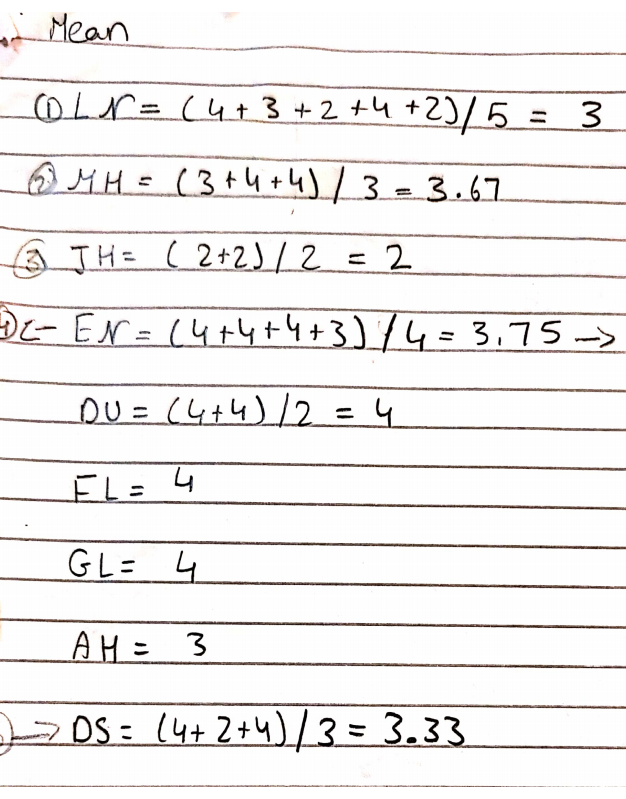 Mean
① LN = (4+3+2+4+2)/5 = 3
② MH = (3+4+4)/3 = 3.67
③ JH = (2+2)/2 = 2
④ <- EN = (4+4+4+3)/4 = 3.75 ->
DU = (4+4)/2 = 4
FL = 4
GL = 4
AH = 3
-> DS = (4+2+4)/3 = 3.33